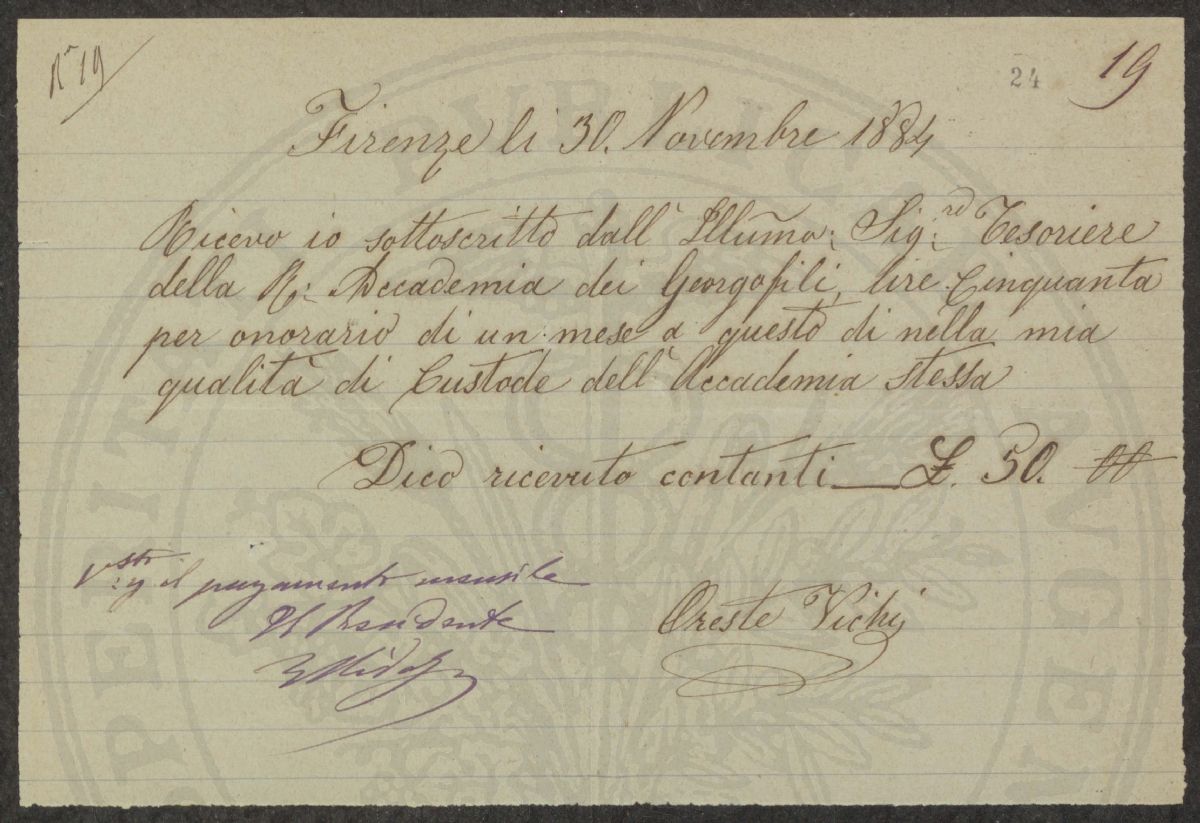 N° 19
24
19
Firenze li 30. Novembre 1884
Ricevo io sottoscritto dall' Illumo: Sig:re Tesoriere
della R: Accademia dei Georgofili, lire Cinquanta
per onorario di un mese a questo dì nella mia
qualità di Custode dell' Accademia stessa
Dico ricevuto contanti — £. 50. 00
il pagamento mensile
Il Presidente
Oreste Vichi
PUBLICAE
PROSPERITATI
AUGENDAE